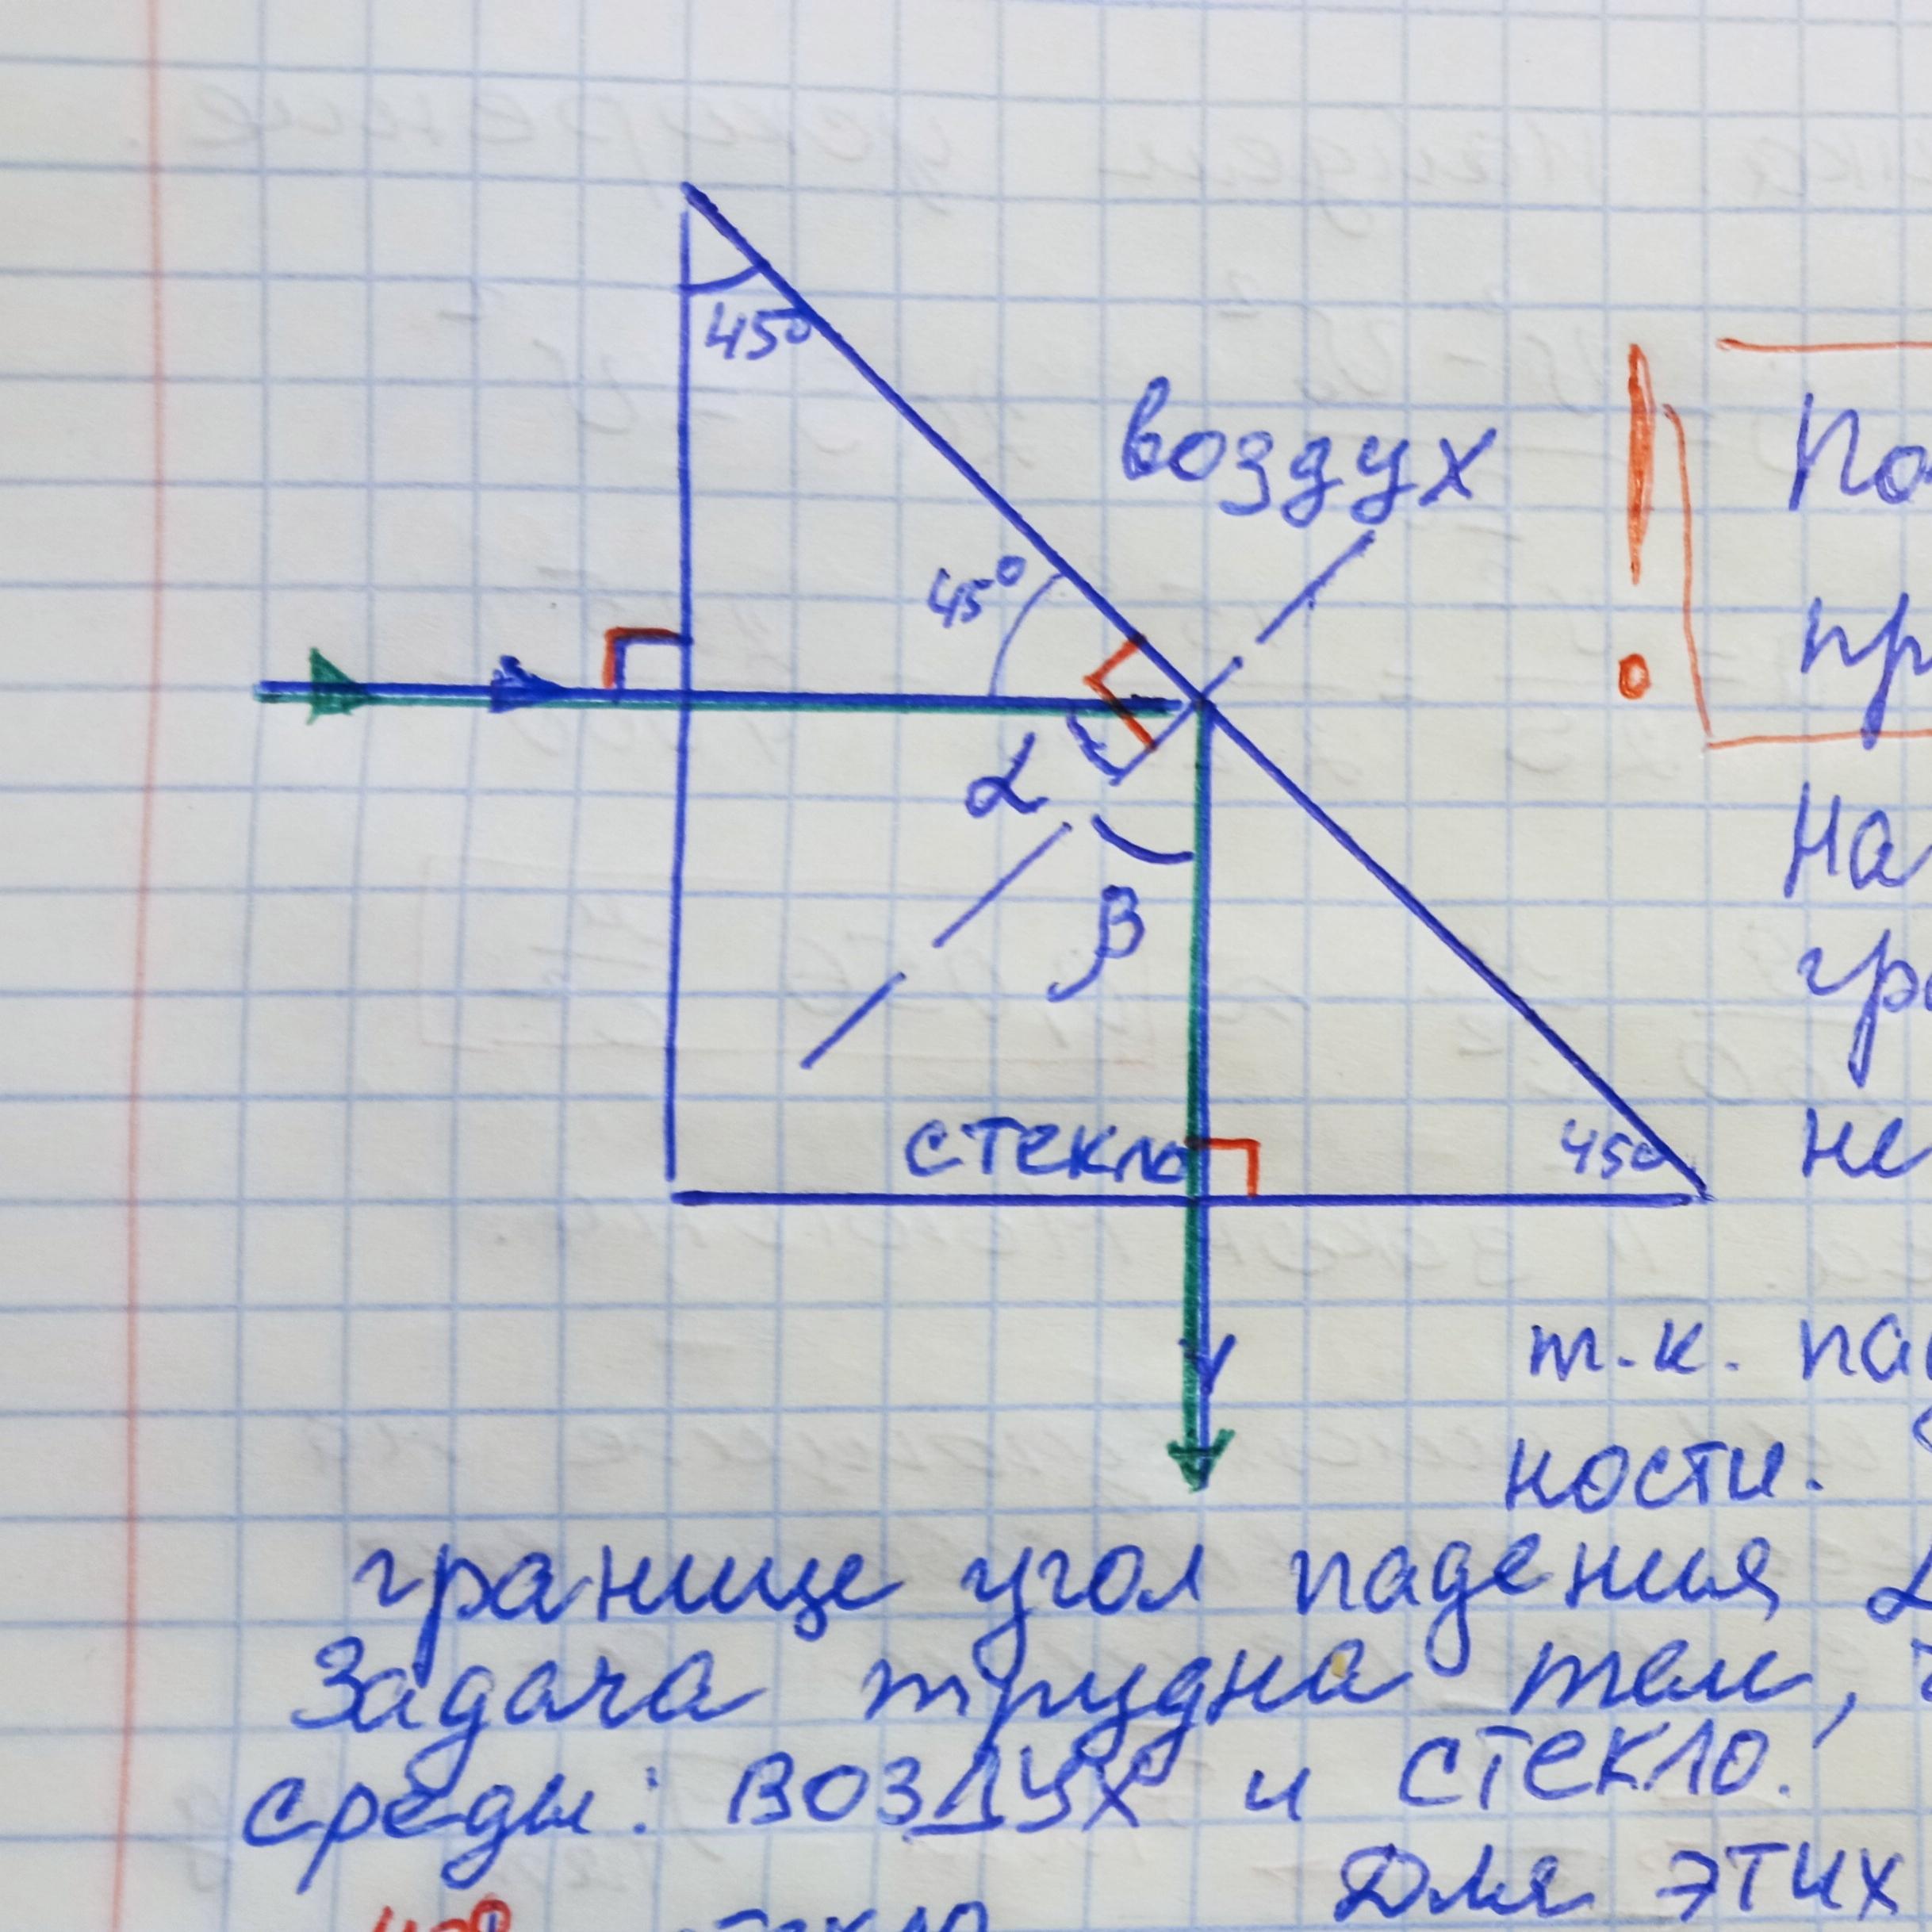 45°
воздух
45°
α
β
стекло
45°
По
пр
На
гра
не
т.к. пад
ности.
границе угол падения α
Задача трудна тем,
среды: воздух и стекло.
Для этих
стекло